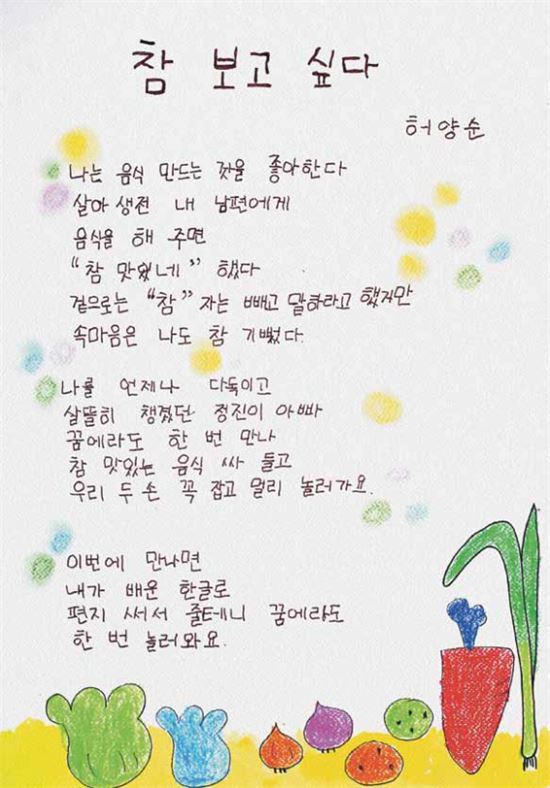 참 보고 싶다
허양순
나는 음식 만드는 것을 좋아한다
살아 생전 내 남편에게
음식을 해 주면
“참 맛있네” 했다
겉으로는 “참” 자는 빼고 말하라고 했지만
속마음은 나도 참 기뻤다.
나를 언제나 다독이고
살뜰히 챙겼던 정진이 아빠
꿈에라도 한 번 만나
참 맛있는 음식 싸 들고
우리 두 손 꼭 잡고 멀리 놀러가요.
이번에 만나면
내가 배운 한글로
편지 써서 줄테니 꿈에라도
한 번 놀러와요.